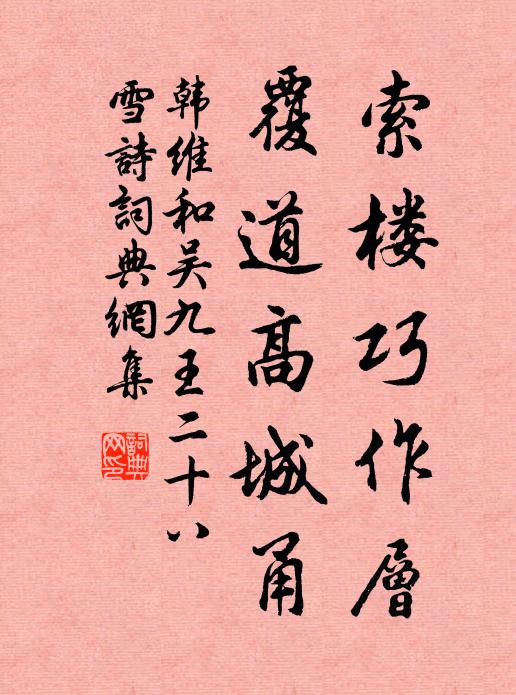 索楼巧作層
覆道高城甬
韩維和吴九王二十八
雪詩詞典網集
詞典
网印